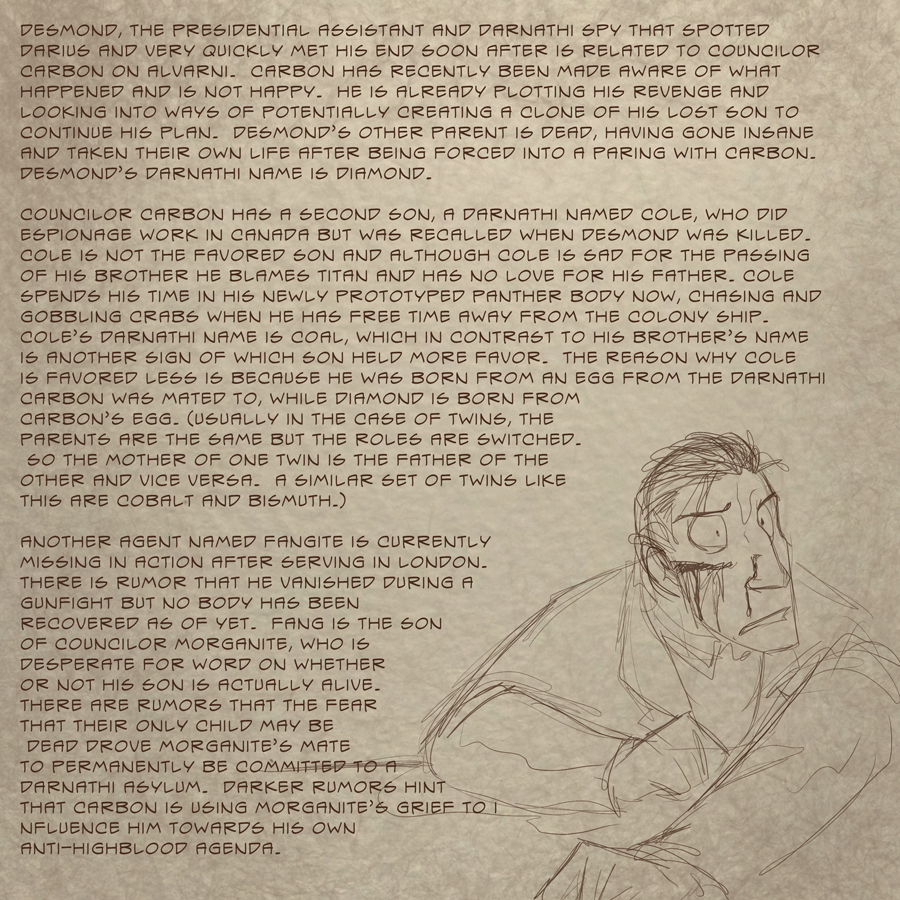 DESMOND, THE PRESIDENTIAL ASSISTANT AND DARNATHI SPY THAT SPOTTED
DARIUS AND VERY QUICKLY MET HIS END SOON AFTER IS RELATED TO COUNCILOR
CARBON ON ALVARNI. CARBON HAS RECENTLY BEEN MADE AWARE OF WHAT
HAPPENED AND IS NOT HAPPY. HE IS ALREADY PLOTTING HIS REVENGE AND
LOOKING INTO WAYS OF POTENTIALLY CREATING A CLONE OF HIS LOST SON TO
CONTINUE HIS PLAN. DESMOND'S OTHER PARENT IS DEAD, HAVING GONE INSANE
AND TAKEN THEIR OWN LIFE AFTER BEING FORCED INTO A PARING WITH CARBON.
DESMOND'S DARNATHI NAME IS DIAMOND.

COUNCILOR CARBON HAS A SECOND SON, A DARNATHI NAMED COLE, WHO DID
ESPIONAGE WORK IN CANADA BUT WAS RECALLED WHEN DESMOND WAS KILLED.
COLE IS NOT THE FAVORED SON AND ALTHOUGH COLE IS SAD FOR THE PASSING
OF HIS BROTHER HE BLAMES TITAN AND HAS NO LOVE FOR HIS FATHER. COLE
SPENDS HIS TIME IN HIS NEWLY PROTOTYPED PANTHER BODY NOW, CHASING AND
GOBBLING CRABS WHEN HE HAS FREE TIME AWAY FROM THE COLONY SHIP.
COLE'S DARNATHI NAME IS COAL, WHICH IN CONTRAST TO HIS BROTHER'S NAME
IS ANOTHER SIGN OF WHICH SON HELD MORE FAVOR. THE REASON WHY COLE
IS FAVORED LESS IS BECAUSE HE WAS BORN FROM AN EGG FROM THE DARNATHI
CARBON WAS MATED TO, WHILE DIAMOND IS BORN FROM
CARBON'S EGG. (USUALLY IN THE CASE OF TWINS, THE
PARENTS ARE THE SAME BUT THE ROLES ARE SWITCHED.
SO THE MOTHER OF ONE TWIN IS THE FATHER OF THE
OTHER AND VICE VERSA. A SIMILAR SET OF TWINS LIKE
THIS ARE COBALT AND BISMUTH.)

ANOTHER AGENT NAMED FANGITE IS CURRENTLY
MISSING IN ACTION AFTER SERVING IN LONDON.
THERE IS RUMOR THAT HE VANISHED DURING A
GUNFIGHT BUT NO BODY HAS BEEN
RECOVERED AS OF YET. FANG IS THE SON
OF COUNCILOR MORGANITE, WHO IS
DESPERATE FOR WORD ON WHETHER
OR NOT HIS SON IS ACTUALLY ALIVE.
THERE ARE RUMORS THAT THE FEAR
THAT THEIR ONLY CHILD MAY BE
DEAD DROVE MORGANITE'S MATE
TO PERMANENTLY BE COMMITTED TO A
DARNATHI ASYLUM. DARKER RUMORS HINT
THAT CARBON IS USING MORGANITE'S GRIEF TO I
NFLUENCE HIM TOWARDS HIS OWN
ANTI-HIGHBLOOD AGENDA.